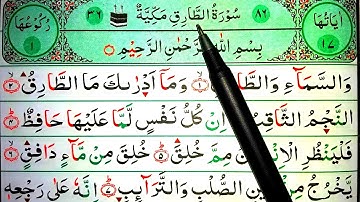 اٰيَاتُهَا ١٧ ٨٦ سُوْرَةُ الطَّارِقِ مَكِّيَّةٌ ٣٦ رُكُوْعُهَا ١
بِسْمِ اللّٰهِ الرَّحْمٰنِ الرَّحِيْمِ
وَالسَّمَآءِ وَالطَّارِقِ ۝١ وَمَآ اَدْرٰىكَ مَا الطَّارِقُ ۝٢
النَّجْمُ الثَّاقِبُ ۝٣ اِنْ كُلُّ نَفْسٍ لَّمَّا عَلَيْهَا حَافِظٌ ۝٤
فَلْيَنْظُرِ الْاِنْسَانُ مِمَّ خُلِقَ ۝٥ خُلِقَ مِنْ مَّآءٍ دَافِقٍ ۝٦
يَّخْرُجُ مِنْۢ بَيْنِ الصُّلْبِ وَالتَّرَآئِبِ ۝٧ اِنَّهٗ عَلٰى رَجْعِهٖ